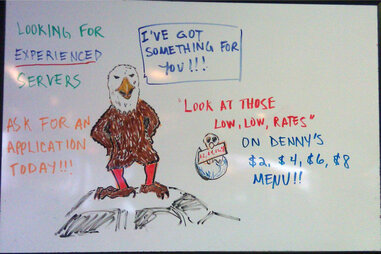 LOOKING FOR
EXPERIENCED
SERVERS
ASK FOR AN
APPLICATION
TODAY!!!
I'VE GOT
SOMETHING FOR
YOU!!!
"LOOK AT THOSE
LOW, LOW, RATES"
ON DENNY'S
$2, $4, $6, $8
MENU!!